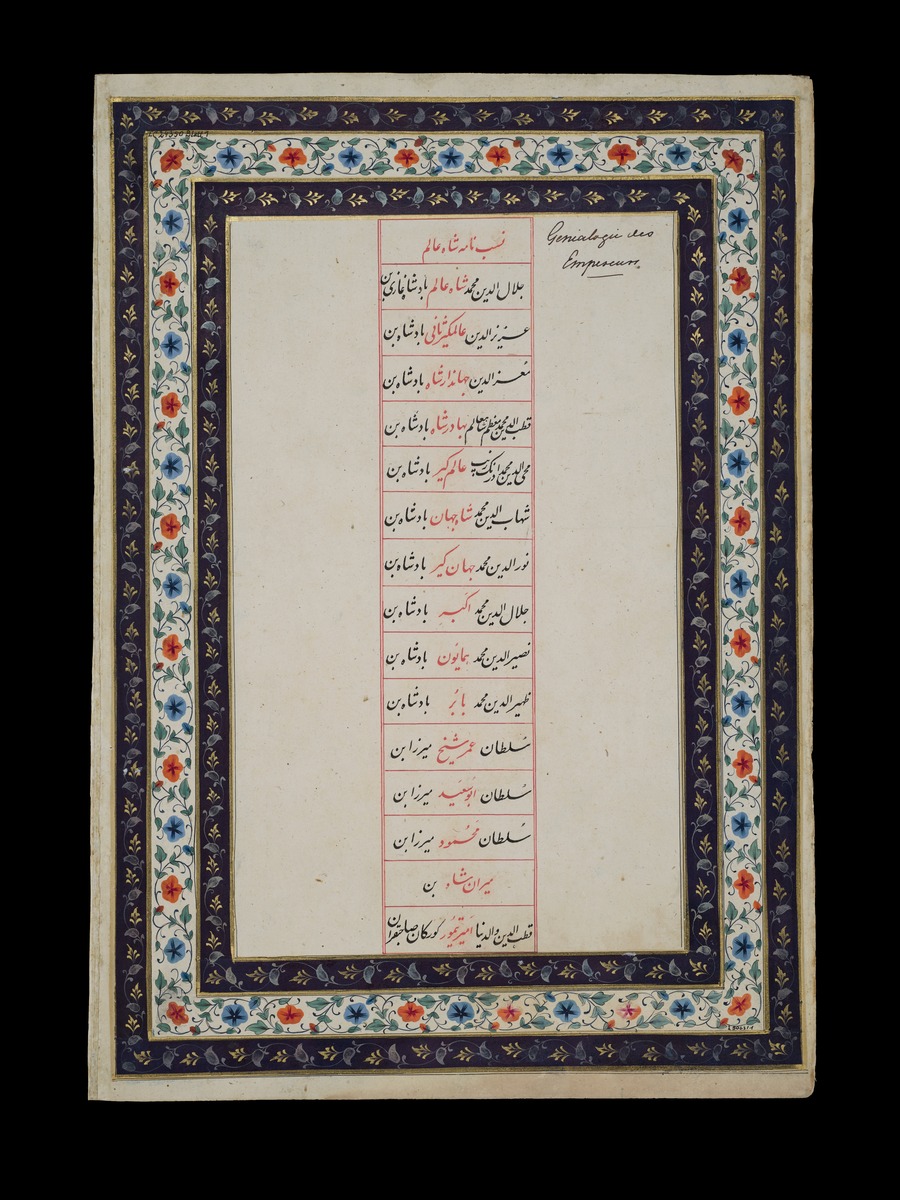 I.C. 24330 Blatt 1
Genialogie des
Empereurs.
نسب نامه شاه عالم
جلال الدین محمد شاه عالم بادشاه غازی بن
عزیز الدین عالمگیر ثانی بادشاه بن
معز الدین جهاندار شاه بادشاه بن
قطب الدین محمد معظم شاه عالم بهادر شاه بادشاه بن
محی الدین محمد اورنگ زیب عالم گیر بادشاه بن
شهاب الدین محمد شاه جهان بادشاه بن
نور الدین محمد جهان گیر بادشاه بن
جلال الدین محمد اکبر بادشاه بن
نصیر الدین محمد همایون بادشاه بن
ظهیر الدین محمد بابر بادشاه بن
سلطان عمر شیخ میرزا بن
سلطان ابو سعید میرزا بن
سلطان محمود میرزا بن
میران شاه بن
قطب الدین والدنیا امیر تیمور گورگان صاحبقران